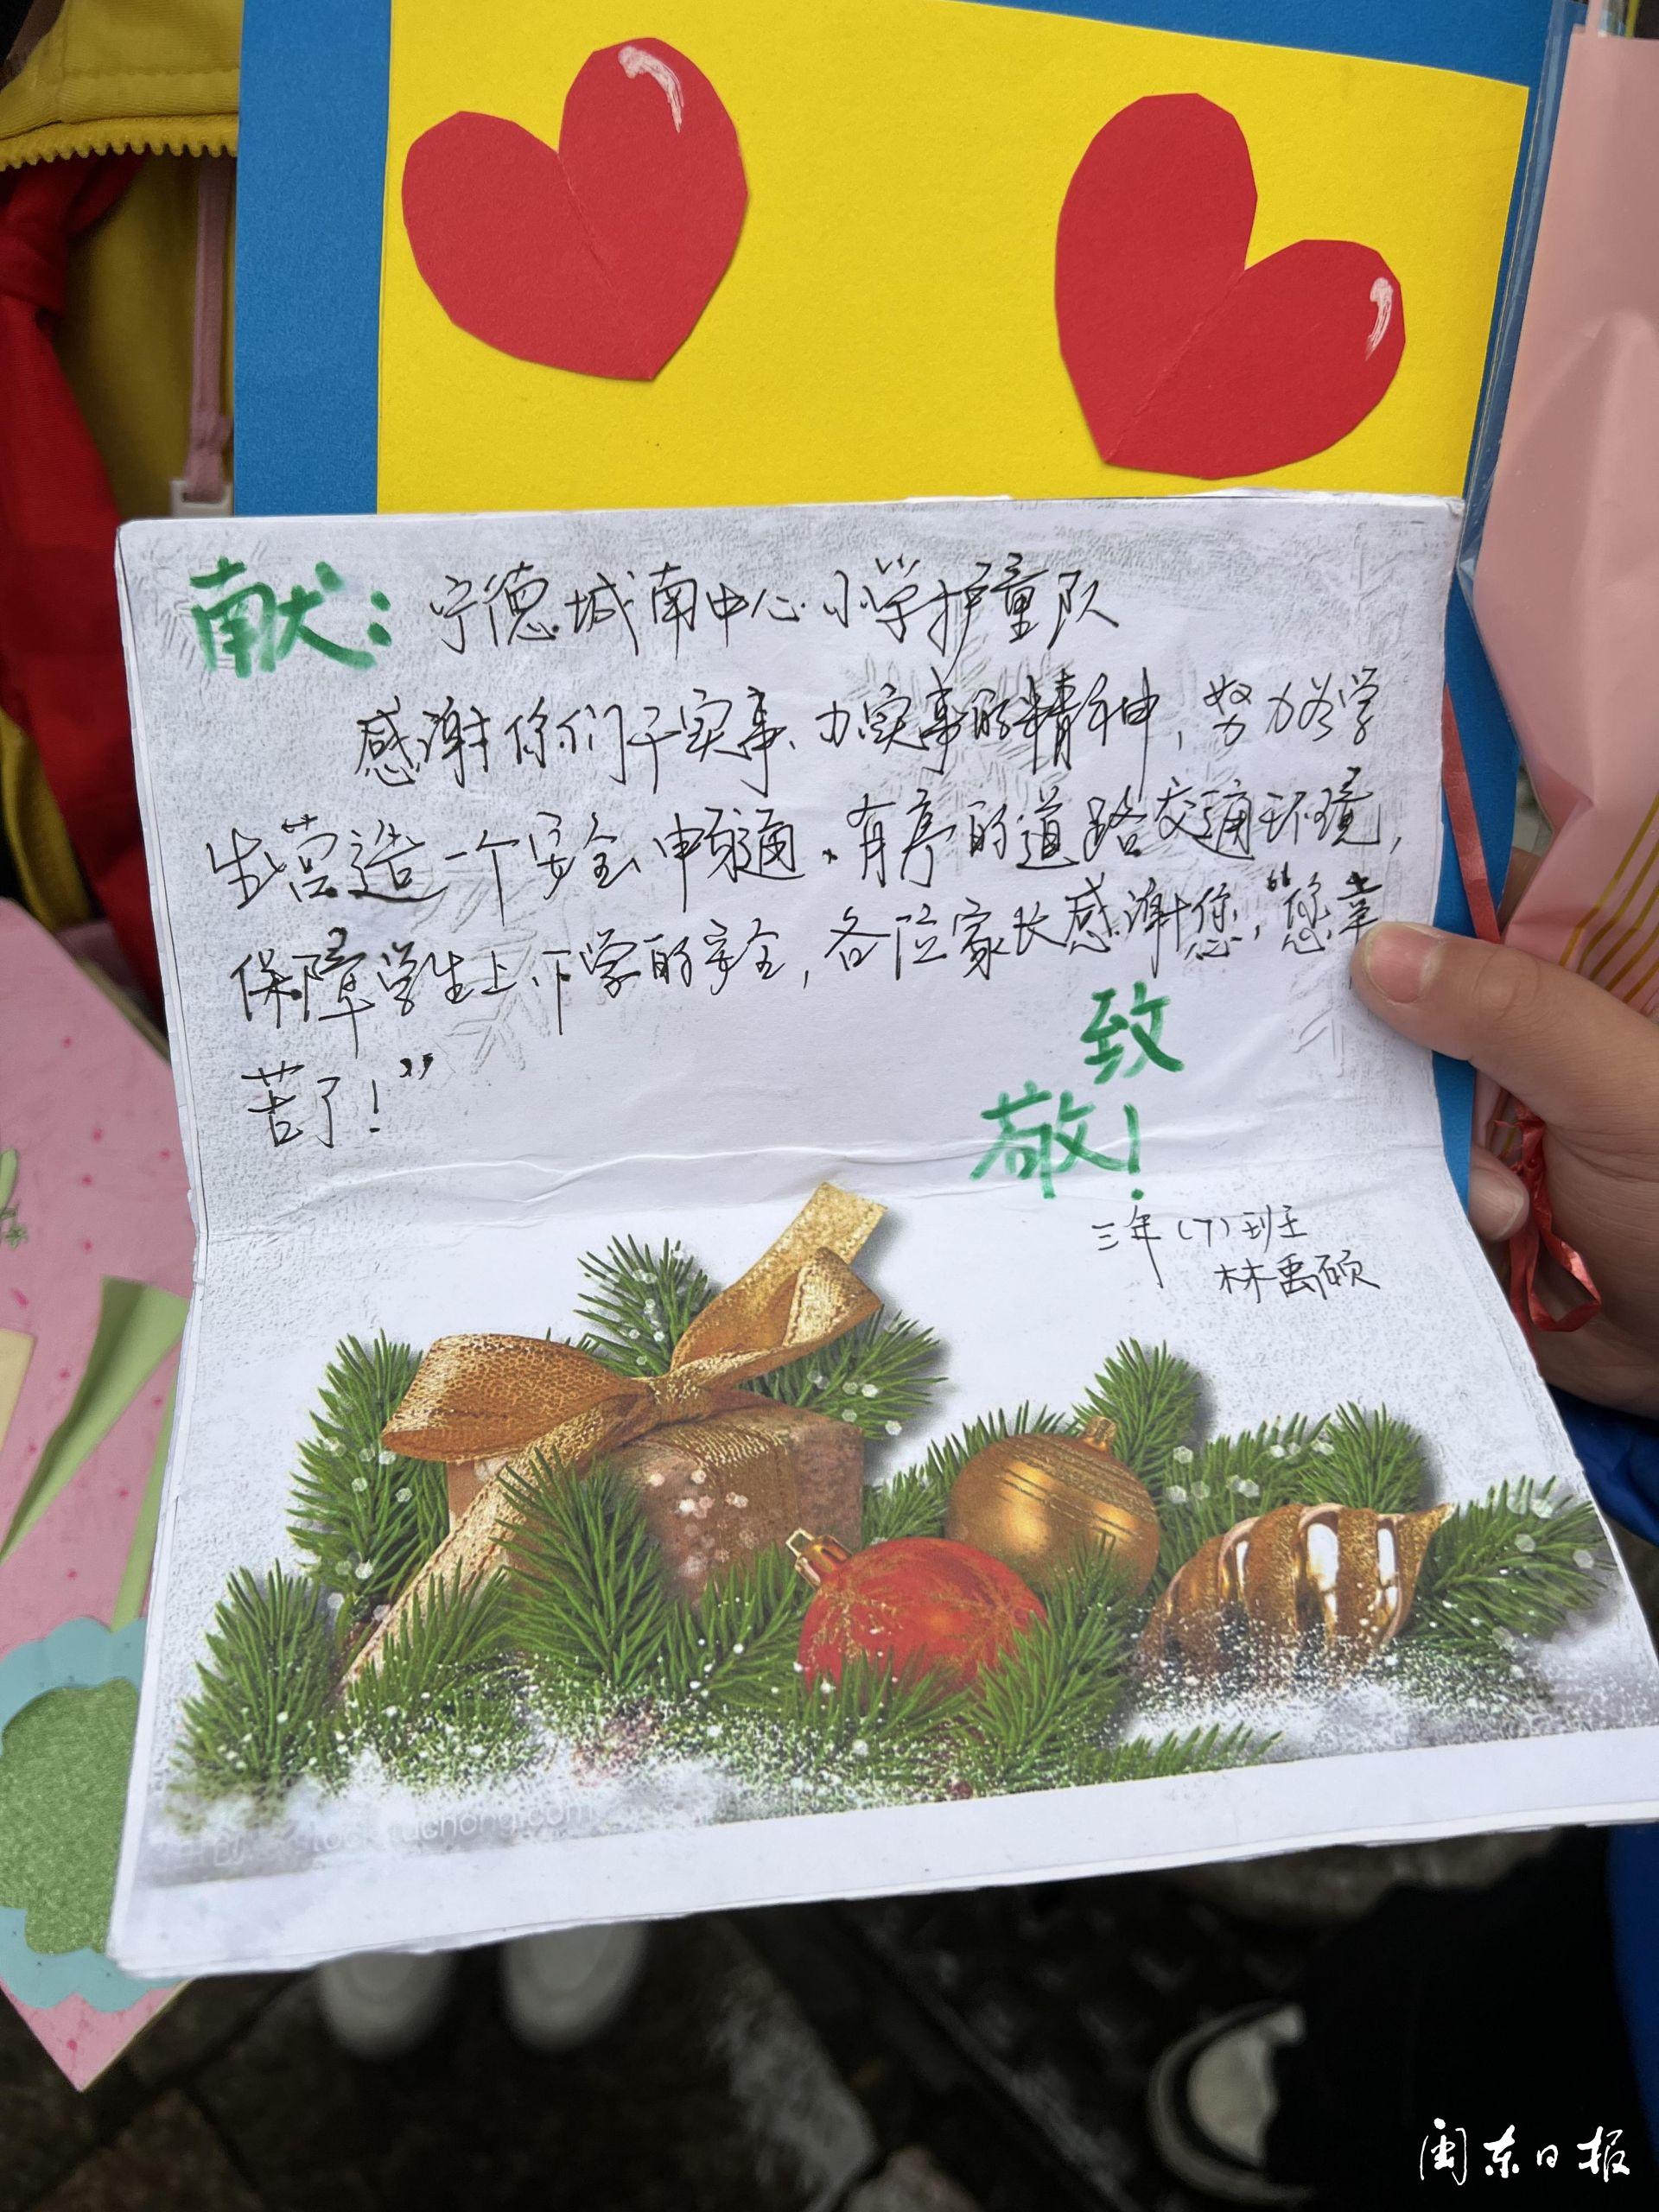 献：宁德城南中心小学护童队
感谢你们干实事、办实事的精神，努力为学
生营造一个安全、畅通、有序的道路交通环境，
保障学生上、下学的安全，各位家长感谢您，“您辛
苦了！”
致
敬！
三年（7）班
林禹硕
闽东日报